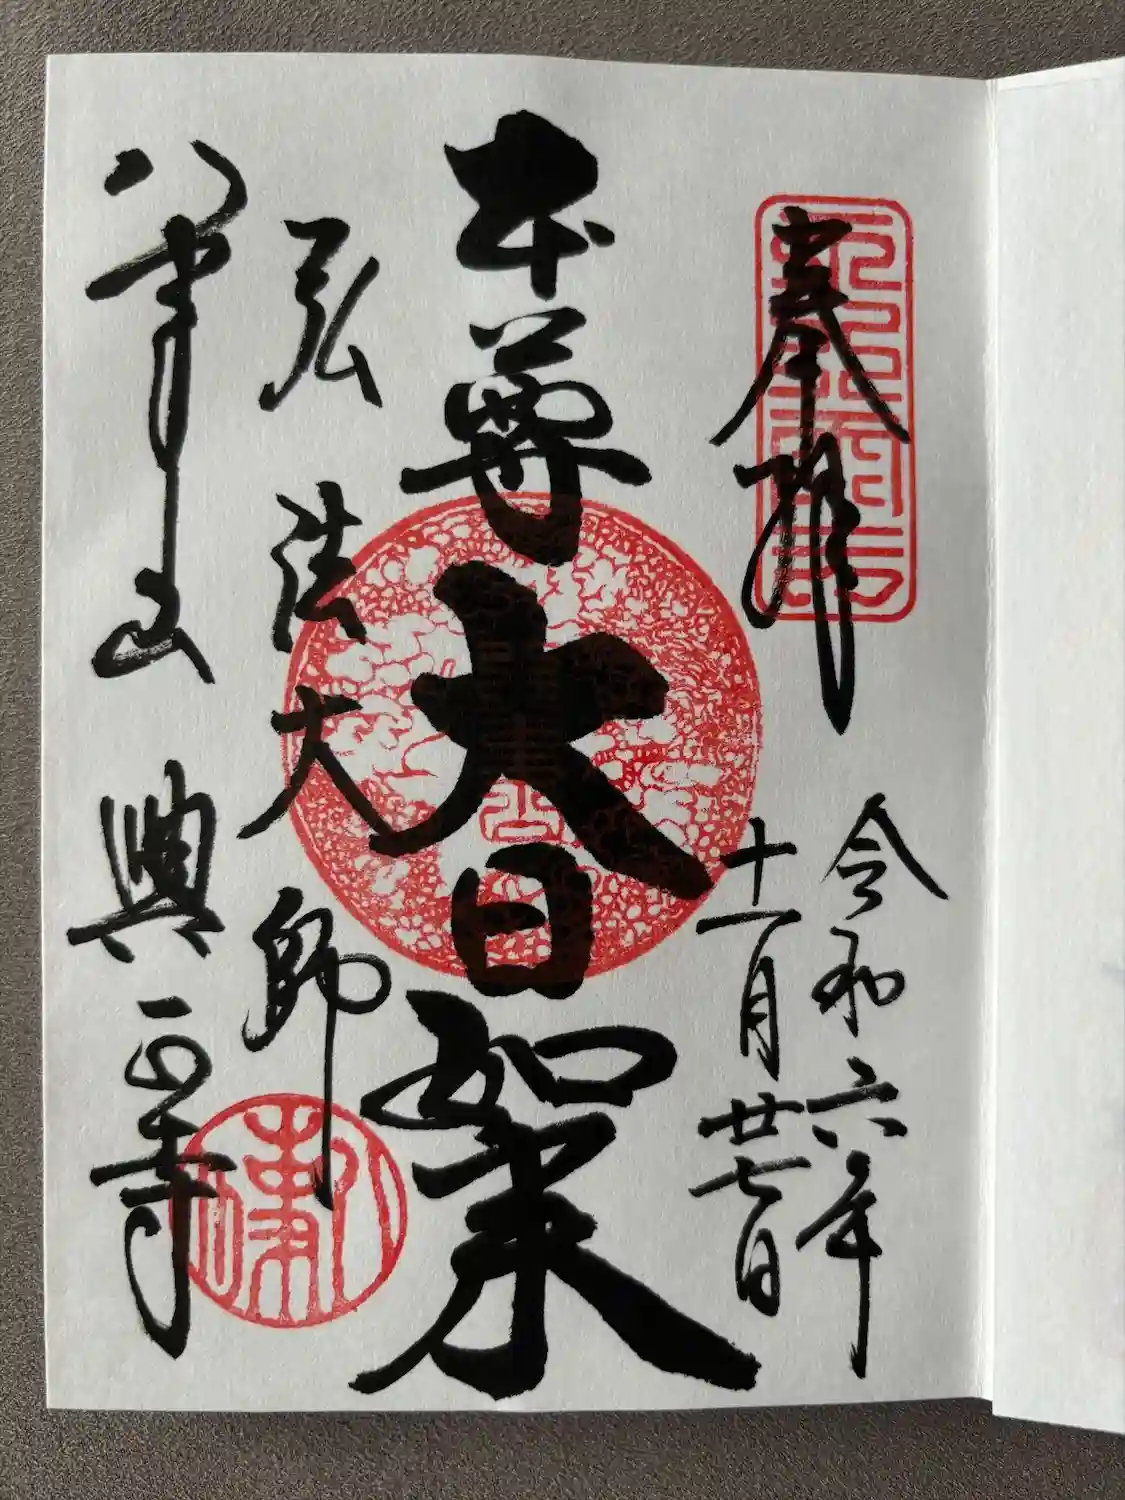 奉拝
令和六年
十一月廿七日
本尊大日如来
弘法大師
山
興正寺